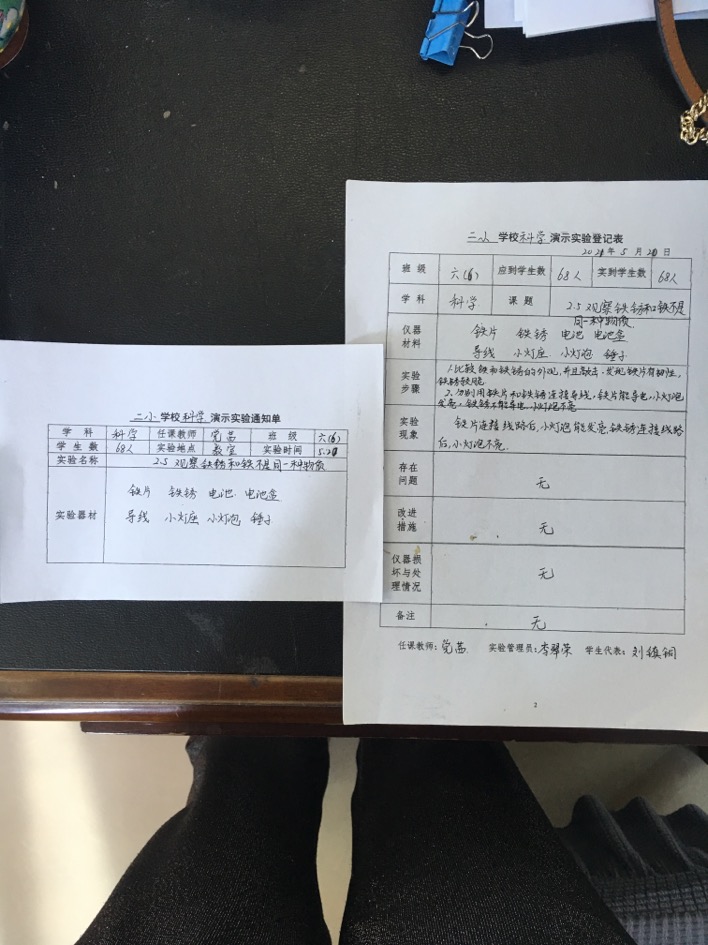 二小 学校 科学 演示实验通知单
学 科 科学 任课教师 党茜 班 级 六(6)
学 生 数 68人 实验地点 教室 实验时间 5.20
实验名称 2.5 观察铁锈和铁不是同一种物质
实验器材 铁片 铁锈 电池 电池盒
导线 小灯座 小灯泡 锤子
二小 学校 科学 演示实验登记表
2021年 5 月 20 日
班 级 六(6) 应到学生数 68人 实到学生数 68人
学 科 科学 课 题 2.5 观察铁锈和铁不是
同一种物质
仪器材料 铁片 铁锈 电池 电池盒
导线 小灯座 小灯泡 锤子
实验步骤 1.比较铁和铁锈的外观,并且敲击,发现铁片有韧性,
铁锈较脆
2、分别用铁片和铁锈连接导线,铁片能导电,小灯泡
发亮,铁锈不能导电,小灯泡不亮
实验现象 铁片连接线路后,小灯泡能发亮,铁锈连接线路
后,小灯泡不亮.
存在问题 无
改进措施 无
仪器损坏与处理情况 无
备注 无
任课教师: 党茜 实验管理员: 李翠荣 学生代表: 刘镇铜
2